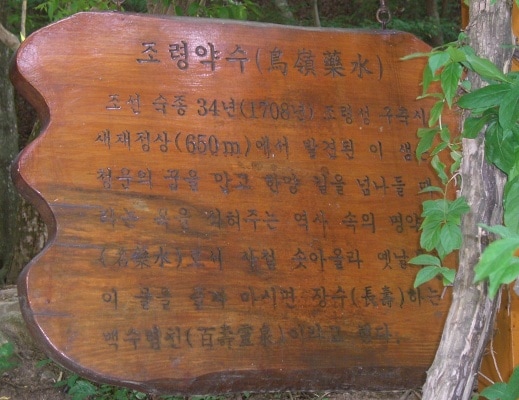 조령약수(鳥嶺藥水)
조선 숙종 34년(1708년) 조령성 구축시
새재정상(650m)에서 발견된 이 샘은
청운의 꿈을 안고 한양 길을 넘나들
목을 축여주는 역사 속의 명약
(名藥水)로서 사철 솟아올라 옛날
이 물을 즐겨 마시면 장수(長壽)하는
백수영천(百壽靈泉)이라고 한다.